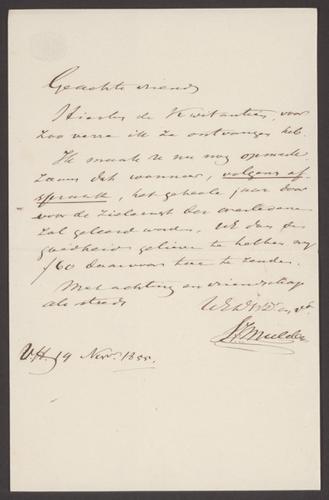 Geachte vriend,
Hierbij de Kwitantien, voor
zoo verre ik ze ontvangen heb.
Ik maak u nu nog opmerk-
zaam dat wanneer, volgens af-
spraak, het geheele jaar door
voor de
zal geleerd worden, UE dan de
goedheid gelieve te hebben mij
f 60 daarvoor toe te zenden.
Met achting en vriendschap
als steeds
UE
Mulder
U.H. 19 Nov. 1855.